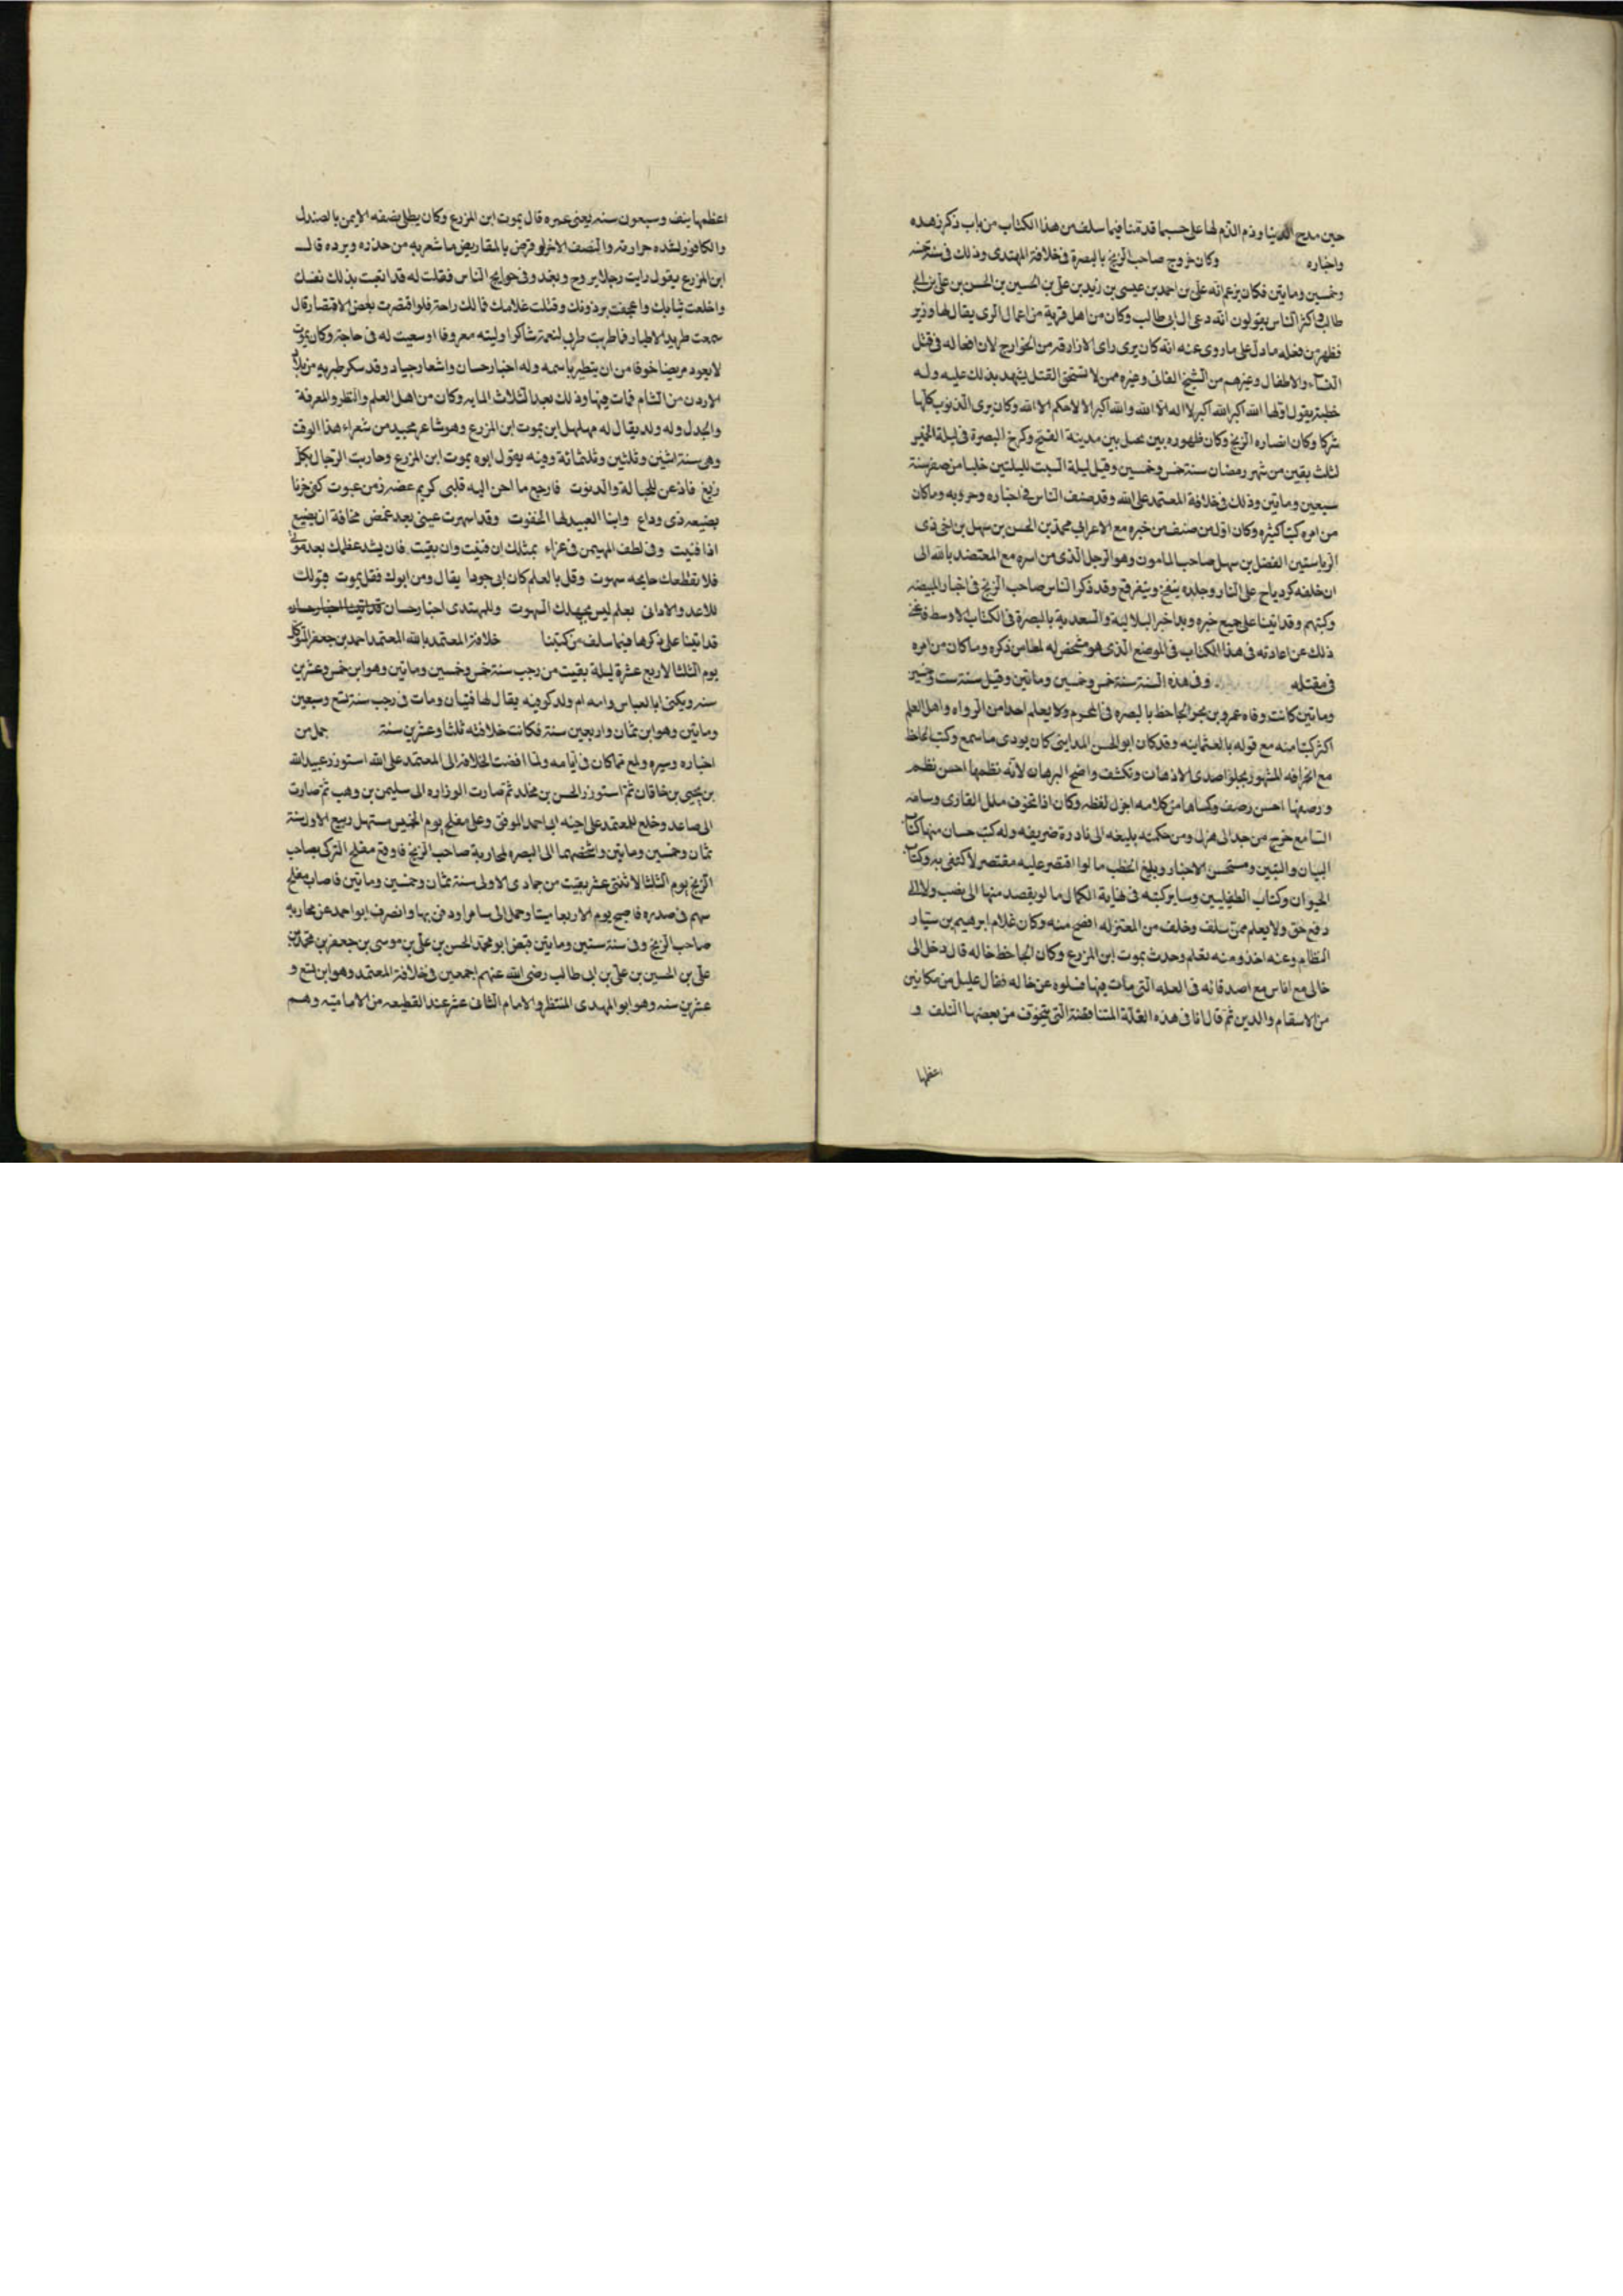 حين مدح الدنيا وذم الذم لها على حسبما قدمنا فيما سلف من هذا الكتاب من باب ذكر زهده
واخباره وكان خروج صاحب الزنج بالبصرة فى خلافة المهتدى وذلك فى سنة خمس
وخمسين وماتين فكان يزعم انه على بن احمد بن عيسى بن زيد بن على بن الحسين بن الحسن بن على بن ابى
طالب واكثر الناس يقولون انه دعى ال ابى طالب وكان من اهل قرية من اعمال الرى يقال لها وزير
فظهر من فعله ما دل على ما روى عنه انه كان يرى راى الازارقه من الخوارج لان افعاله فى قتل
النساء والاطفال وغيرهم من الشيخ الفانى وغيره ممن لا يستحق القتل يشهد بذلك عليه وله
خطبة يقول اولها الله اكبر الله اكبر لا اله الا الله والله اكبر الا لا حكم الا الله وكان يرى الذنوب كلها
شركا وكان انصاره الزنج وكان ظهوره ببير نخل بين مدينة الفتح وكرخ البصرة فى ليلة الخميس
لثلث بقين من شهر رمضان سنة خمس وخمسين وقيل ليلة السبت لليلتين خليا من صفر سنة
سبعين وماتين وذلك فى خلافة المعتمد على الله وقد صنف الناس فى اخباره وحروبه وما كان
من امره كتبا كثيره وكان اول من صنف من خبره مع الاعراب محمد بن الحسن بن سهل بن اخى ذى
الرياستين الفضل بن سهل صاحب المامون وهو الرجل الذى من امره مع المعتضد بالله الى
ان خلفه كردياج على النار وجلده ينفخ ويتفرقع وقد ذكر الناس صاحب الزنج فى اخبار المبيضه
وكتبهم وقد اتينا على جميع خبره وبدا خبر البلالية والسعدية بالبصرة فى الكتاب الاوسط
ذلك عن اعادته فى هذا الكتاب فى الموضع الذى هو مستحق له ذكره وما كان من امره
فى مقتله وفى هذه السنة سنة خمس وخمسين وماتين وقيل سنة ست وخمسين
وماتين كانت وفاه عمرو بن بحر الجاحظ بالبصره فى المحرم ولا يعلم احدا من الرواه واهل العلم
اكثر كتبا منه مع قوله بالعثمانيه وقد كان ابو الحسن المداينى كان يودى ما سمع وكتب الجاحظ
مع انحرافه المشهور يجلوا صدى الاذهان وتكشف واضح البرهان لانه نظمها احسن نظم
ورصفها احسن رصف وكساها من كلامه اجزل لفظه وكان اذا تخوف ملل القارى وسامة
السامع خرج من جد الى هزل ومن حكمة بليغه الى نادرة ضريفه وله كتب حسان منها كتاب
البيان والتبيين ومستحسن الاخبار وبليغ الخطب ما لو اقتصر عليه مقتصر لاكتفى به وكتاب
الحيوان وكتاب الطفيليين وساير كتبه فى نهاية الكمال ما لم يقصد منها الى نصب ولا الى
دفع حق ولا يعلم ممن سلف وخلف من المعتزله افصح منه وكان غلام ابرهيم بن سيار
النظام وعنه اخذ ومنه تعلم وحدث يموت ابن المزرع وكان الجاحظ خاله قال دخل الى
خالى مع اناس مع اصدقائه فى العله التى مات فيها فسلوه عن حاله فقال عليل من مكانين
من الاسقام والدين ثم قال انا فى هذه العلة المتناقضة التى يتخوف من بعضها التلف و
اعظمها
اعظمها نيف وسبعون سنه يعنى عمره قال يموت ابن المزرع وكان يطلى نصفه الايمن بالصندل
والكافور لشده حرارته والنصف الاخر لو قرض بالمقاريض ما شعر به من خدره وبرده قال
ابن المزرع يقول رايت رجلا يروح ويغدو فى حوايج الناس فقلت له قد اتعبت بذلك نفسك
واخلقت ثيابك واعجفت برذونك وقتلت غلامك فما لك راحة فلو اقتصرت بعض الاقتصار قال
سمعت طربه الاطيار فما طربت طربى لنعمة شاكر اوليته معروفا او سعيت له فى حاجة وكان يموت
لا يعود مريضا خوفا من ان يتطير باسمه وله اخبار حسان واشعار جياد وقد سكن طبريه من بلاد
الاردن من الشام فمات فيها وذلك بعد الثلاث المايه وكان من اهل العلم والنظر والمعرفة
والجدل وله ولد يقال له مهلهل ابن يموت ابن المزرع وهو شاعر مجيد من شعراء هذا الوقت
وهى سنة اثنين وثلثين وثلثمائة وفيه يقول ابوه يموت ابن المزرع وحاربت الرجال بكل
ريع فاذعن لى والدنوت فاوجع ما احن اليه قلبى كريم عضه زمن عبوت كفى حزنا
بضيعه ذى وداع وابنا العبيد لها التخوت وقد اسهرت عينى بعد غمض مخافة ان يضيع
اذا فنيت وفى لطف المهيمن فى عزاء بمثلك ان فنيت وان بقيت فان يشد عظمك بعد موتى
فلا تقطعك جايحه سبوت وقل بالعلم كان ابى جوادا يقال ومن ابوك فقل يموت يقر لك
للاعد والادانى بعلم ليس يجهلك البهوت وللمهتدى اخبار حسان قد اتينا اخبار حسان
قد اتينا على ذكرها فيما سلف من كتبنا خلافة المعتمد بالله المعتمد احمد بن جعفر المتوكل
يوم الثلثا لاربع عشرة ليلة بقيت من رجب سنة خمس وخمسين وماتين وهو ابن خمس وعشرين
سنه ويكنى ابا العباس وامه ام ولد كوفيه يقال لها فتيان ومات فى رجب سنة تسع وسبعين
وماتين وهو ابن ثمان واربعين سنة فكانت خلافته ثلثا وعشرين سنة جمل من
اخباره وسيره ولمع مما كان فى ايامه ولما افضت الخلافة الى المعتمد على الله استوزر عبيد الله
بن يحيى بن خاقان ثم استوزر الحسن بن مخلد ثم صارت الوزاره الى سليمن بن وهب ثم صارت
الى صاعد وخلع المعتمد على اخيه ابى احمد الموفق وعلى مفلح يوم الخميس مستهل ربيع الاول سنة
ثمان وخمسين وماتين واشخصهما الى البصره لمحاربة صاحب الزنج فاوقع مفلح التركى بصاحب
الزنج يوم الثلثا لاثنتى عشر بقيت من جمادى الاولى سنة ثمان وخمسين وماتين فاصاب مفلح
سهم فى صدره فاصبح يوم الاربعا ميتا وحمل الى سامرا ودفن بها وانصرف ابو احمد عن محاربه
صاحب الزنج وفى سنة ستين وماتين قبض ابو محمد الحسن بن على بن موسى بن جعفر بن محمد بن
على بن الحسين بن على بن ابى طالب رضى الله عنهم اجمعين فى خلافة المعتمد وهو ابن تسع و
عشرين سنه وهو ابو المهدى المنتظر والامام الثانى عشر عند القطيعه من الاماميه وهم